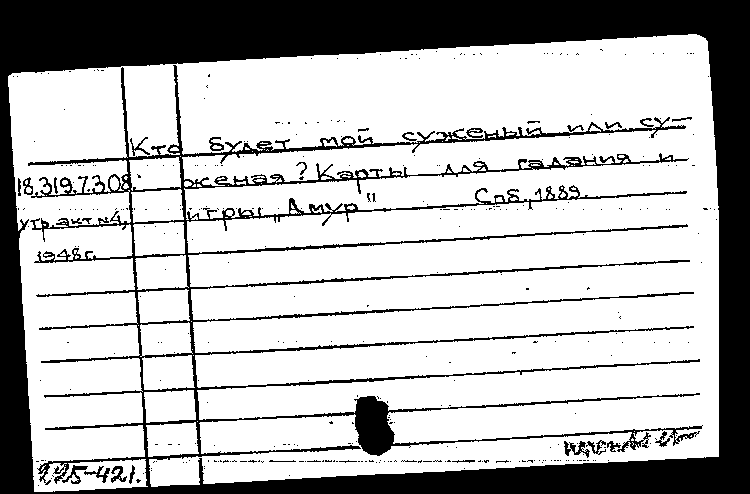 Кто будет мой суженый или су-
18.319.7.308. женая? Карты для гадания и
утр. акт. №4, игры „Амур" Спб., 1889.
1948 г.
225-421.